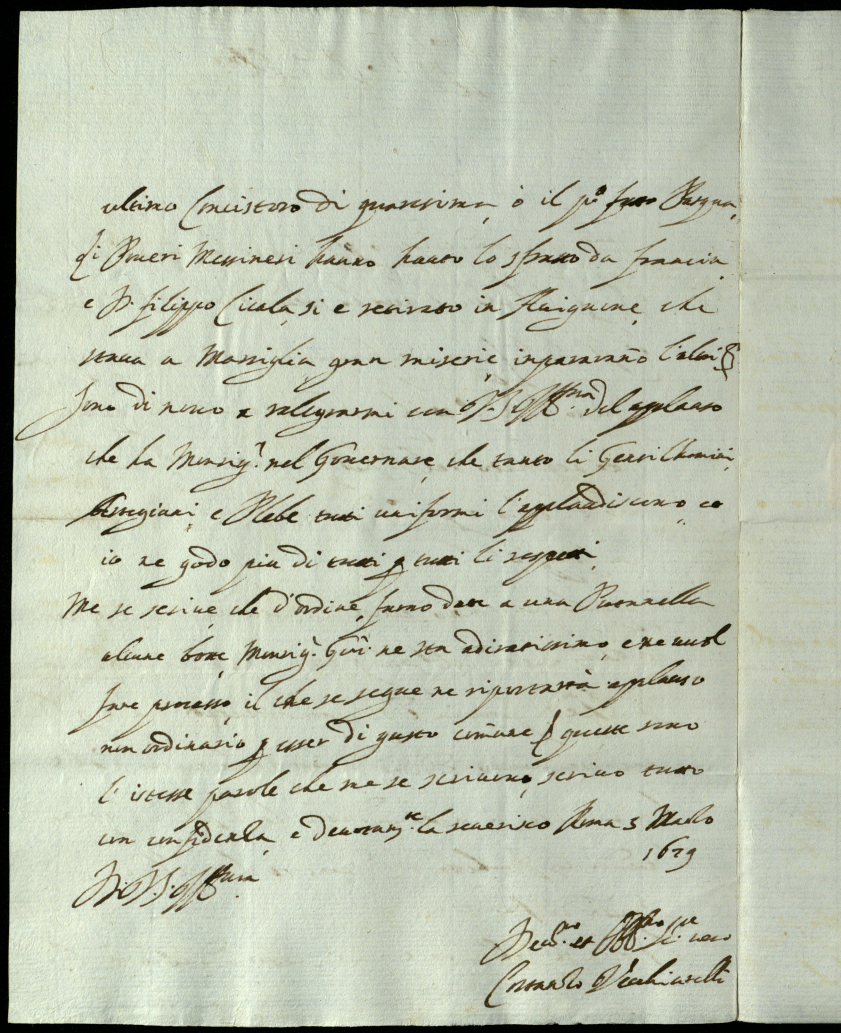 ultimo Concistoro di quaresima, ò il p.o fatto Pasqua,
q.i Poveri Messinesi hanno hauto lo sfratto da francia
e D. filippo Cicala, si e retirato in Avignone, che
stava a Marsiglia gran miserie inpararanno l'altri
sono di novo a rallegrarmi con V.S. Ill.ma del applauso
che ha Monsig.r nel Governare, che tanto li Gentilhomini,
Artegiani, e Plebe tutti uniformi l'applaudiscono, et
io ne godo piu di tutti p tutti li rispetti
Me se scrive che d'ordine, furno date a una
alcune botte Monsig.r Gov.r ne sta adiratissimo, e ne vuol
fare processo, il che se segue ne riportarà applauso
non ordinario p esser di gusto comune queste sono
l'istesse parole che me se scrivono, scrivo tutto
con confidenza, e devotam.te la reverisco Roma 5 Marzo
1679
D. V.S. Ill.ma
Dev.mo et Obb.mo Se.re vero
Corrado Vecchiarelli